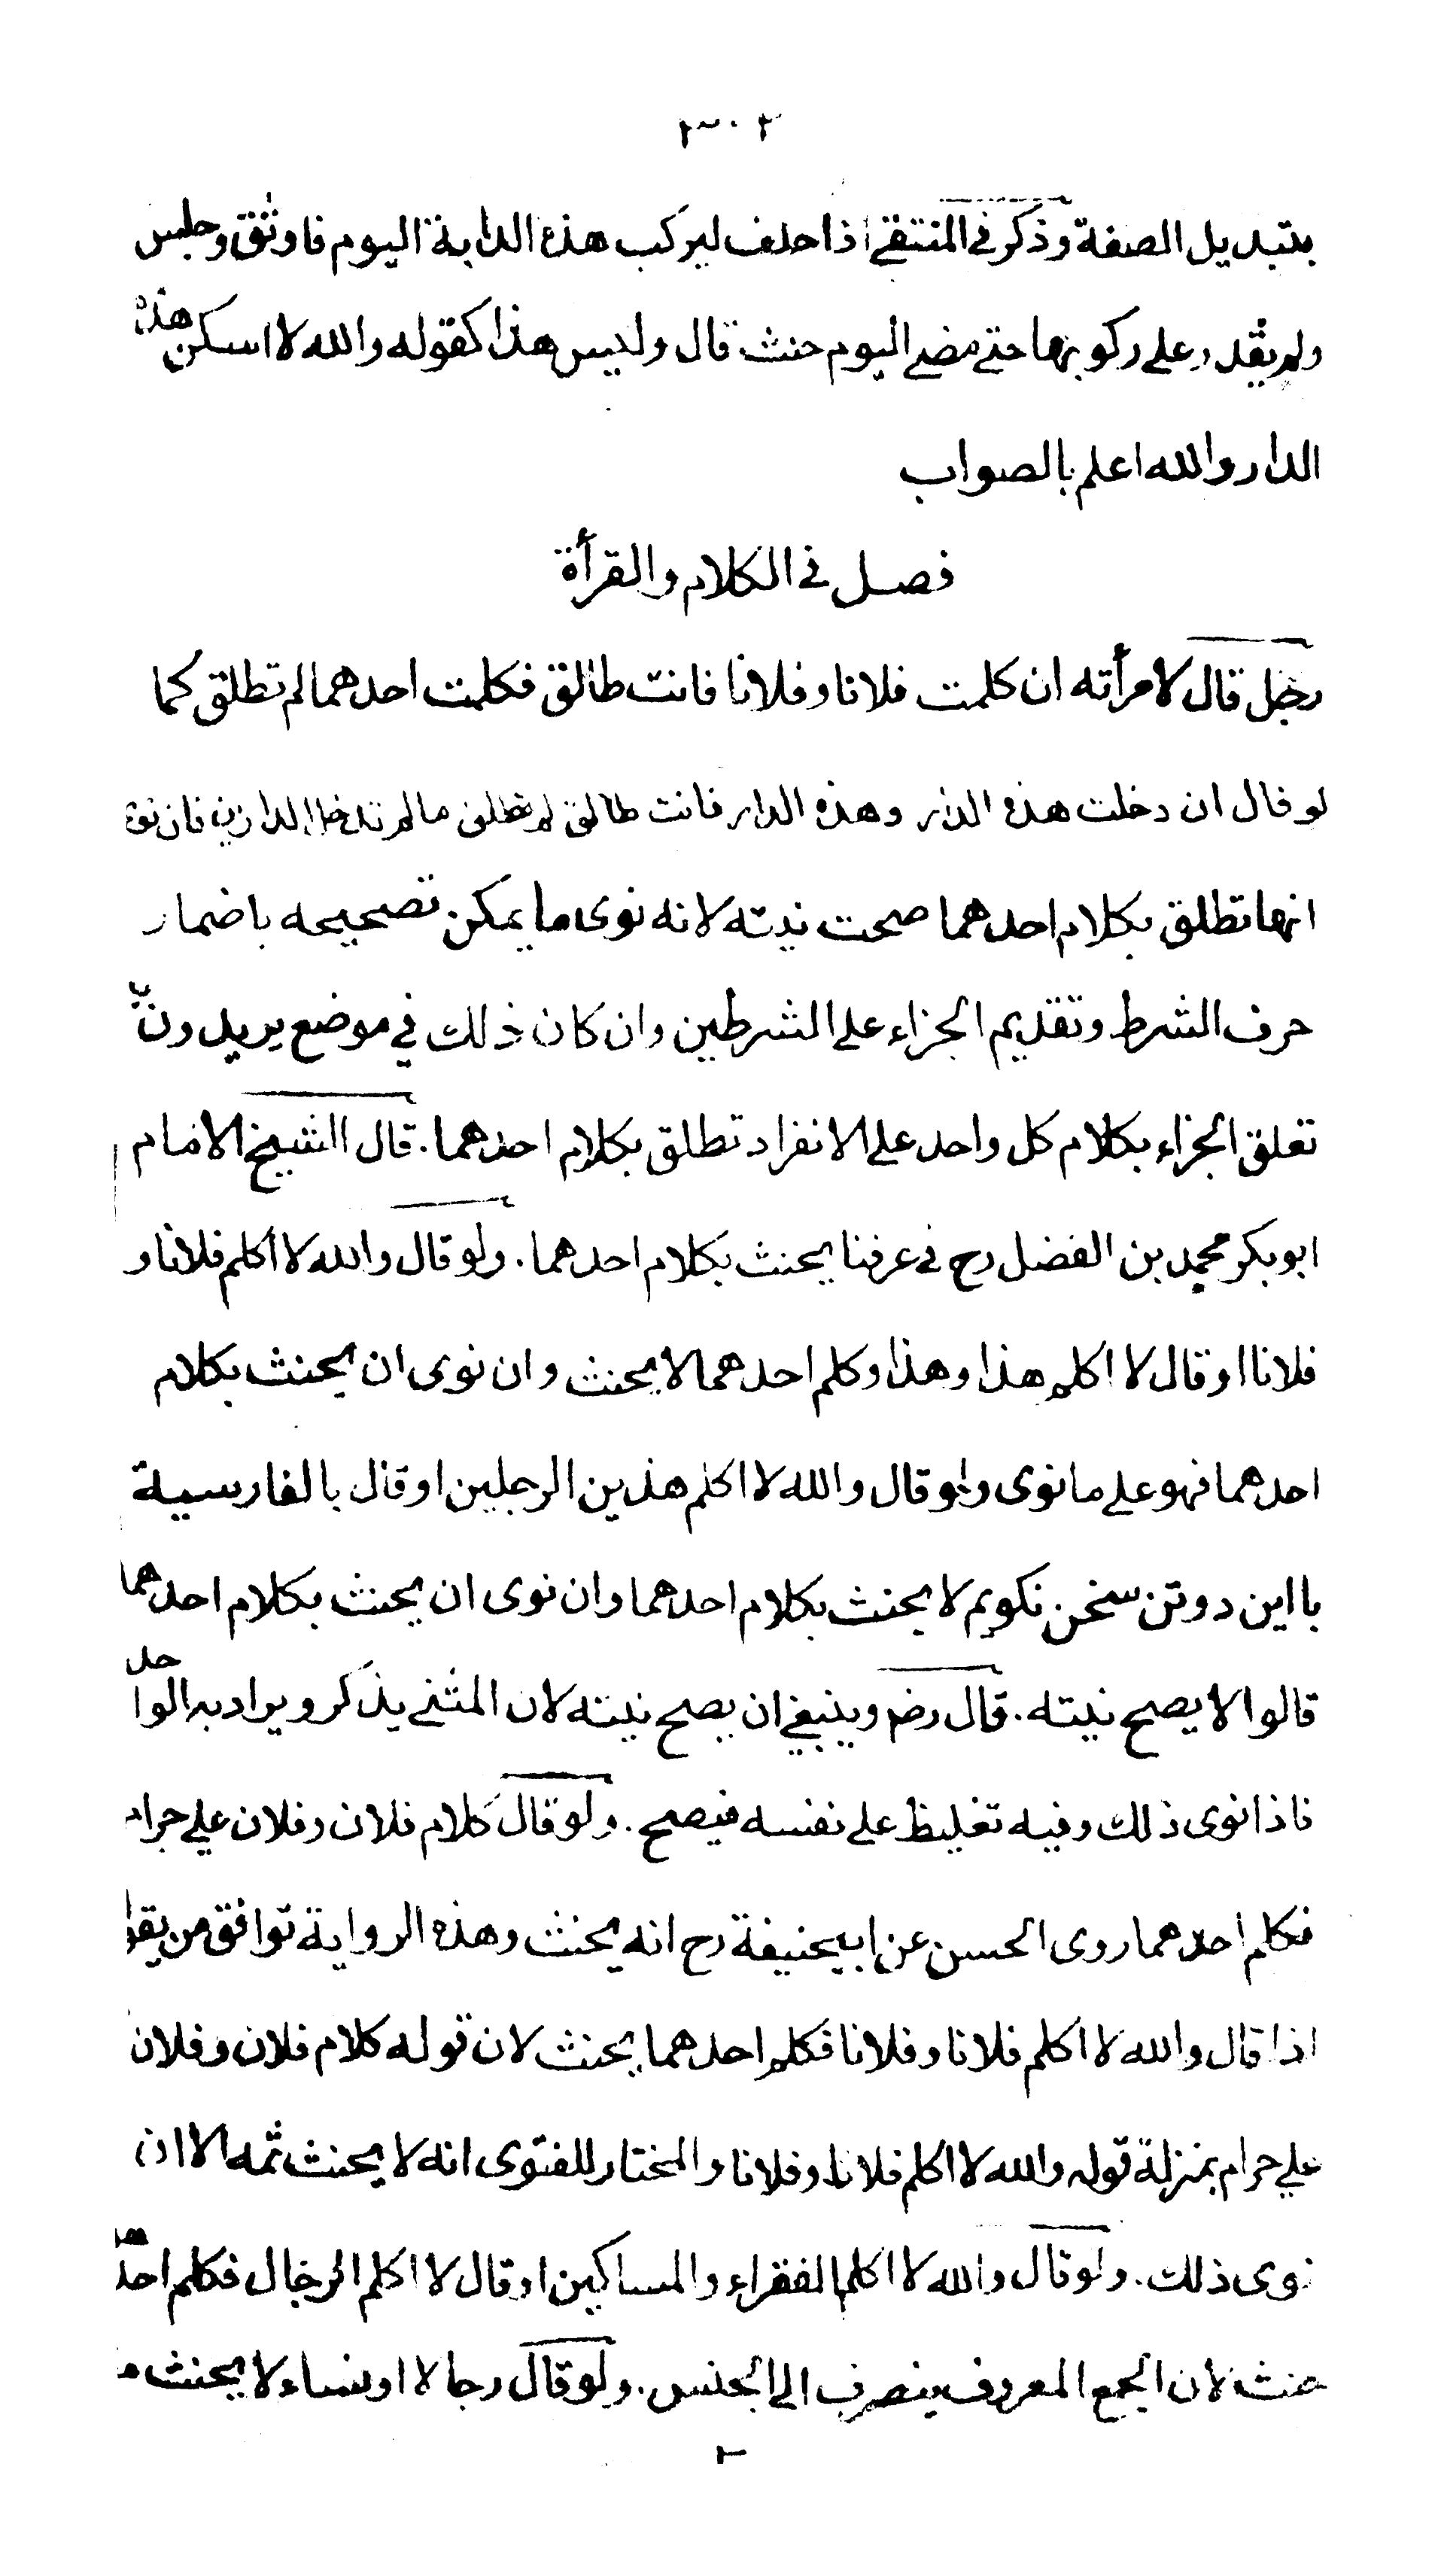 ٣٠٢
بتبديل الصفة وذكر في المنتقى اذا حلف ليركبن هذه الدابة اليوم فاوثق وحبس
ولم يقدر على ركوبها حتى مضى اليوم حنث قال وليس هذا كقوله والله لا اسكن هذه
الدار والله اعلم بالصواب
فصل في الكلام والقرأة
رجل قال لامرأته ان كلمت فلانا وفلانا فانت طالق فكلمت احدهما لم تطلق كما
لو قال ان دخلت هذه الدار وهذه الدار فانت طالق لم تطلق مالم تدخل الدارين فان نوى
انها تطلق بكلام احدهما صحت نيته لانه نوى ما يمكن تصحيحه باضمار
حرف الشرط وتقديم الجزاء على الشرطين وان كان ذلك في موضع يريدون به
تعلق الجزاء بكلام كل واحد على الانفراد تطلق بكلام احدهما. قال الشيخ الامام
ابو بكر محمد بن الفضل رح في عرفنا يحنث بكلام احدهما. ولو قال والله لا اكلم فلانا و
فلانا او قال لا اكلم هذا وهذا وكلم احدهما لا يحنث وان نوى ان يحنث بكلام
احدهما فهو على ما نوى ولو قال والله لا اكلم هذين الرجلين او قال بالفارسية
با اين دو تن سخن نكويم لا يحنث بكلام احدهما وان نوى ان يحنث بكلام احدهما
قالوا لا يصح نيته. قال رضـ وينبغي ان يصح نيته لان المثنى يذكر ويراد به الواحد
فاذا نوى ذلك وفيه تغليظ على نفسه فيصح. ولو قال كلام فلان وفلان علي حرام
فكلم احدهما روى الحسن عن ابيحنيفة رح انه يحنث وهذه الرواية توافق من يقول
اذا قال والله لا اكلم فلانا وفلانا فكلم احدهما يحنث لان قوله كلام فلان وفلان
علي حرام بمنزلة قوله والله لا اكلم فلانا وفلانا والمختار للفتوى انه لا يحنث ثمه الا ان
نوى ذلك. ولو قال والله لا اكلم الفقراء والمساكين او قال لا اكلم الرجال فكلم احدهما
حنث لان الجمع المعروف ينصرف الى الجنس. ولو قال رجالا او نساء لا يحنث